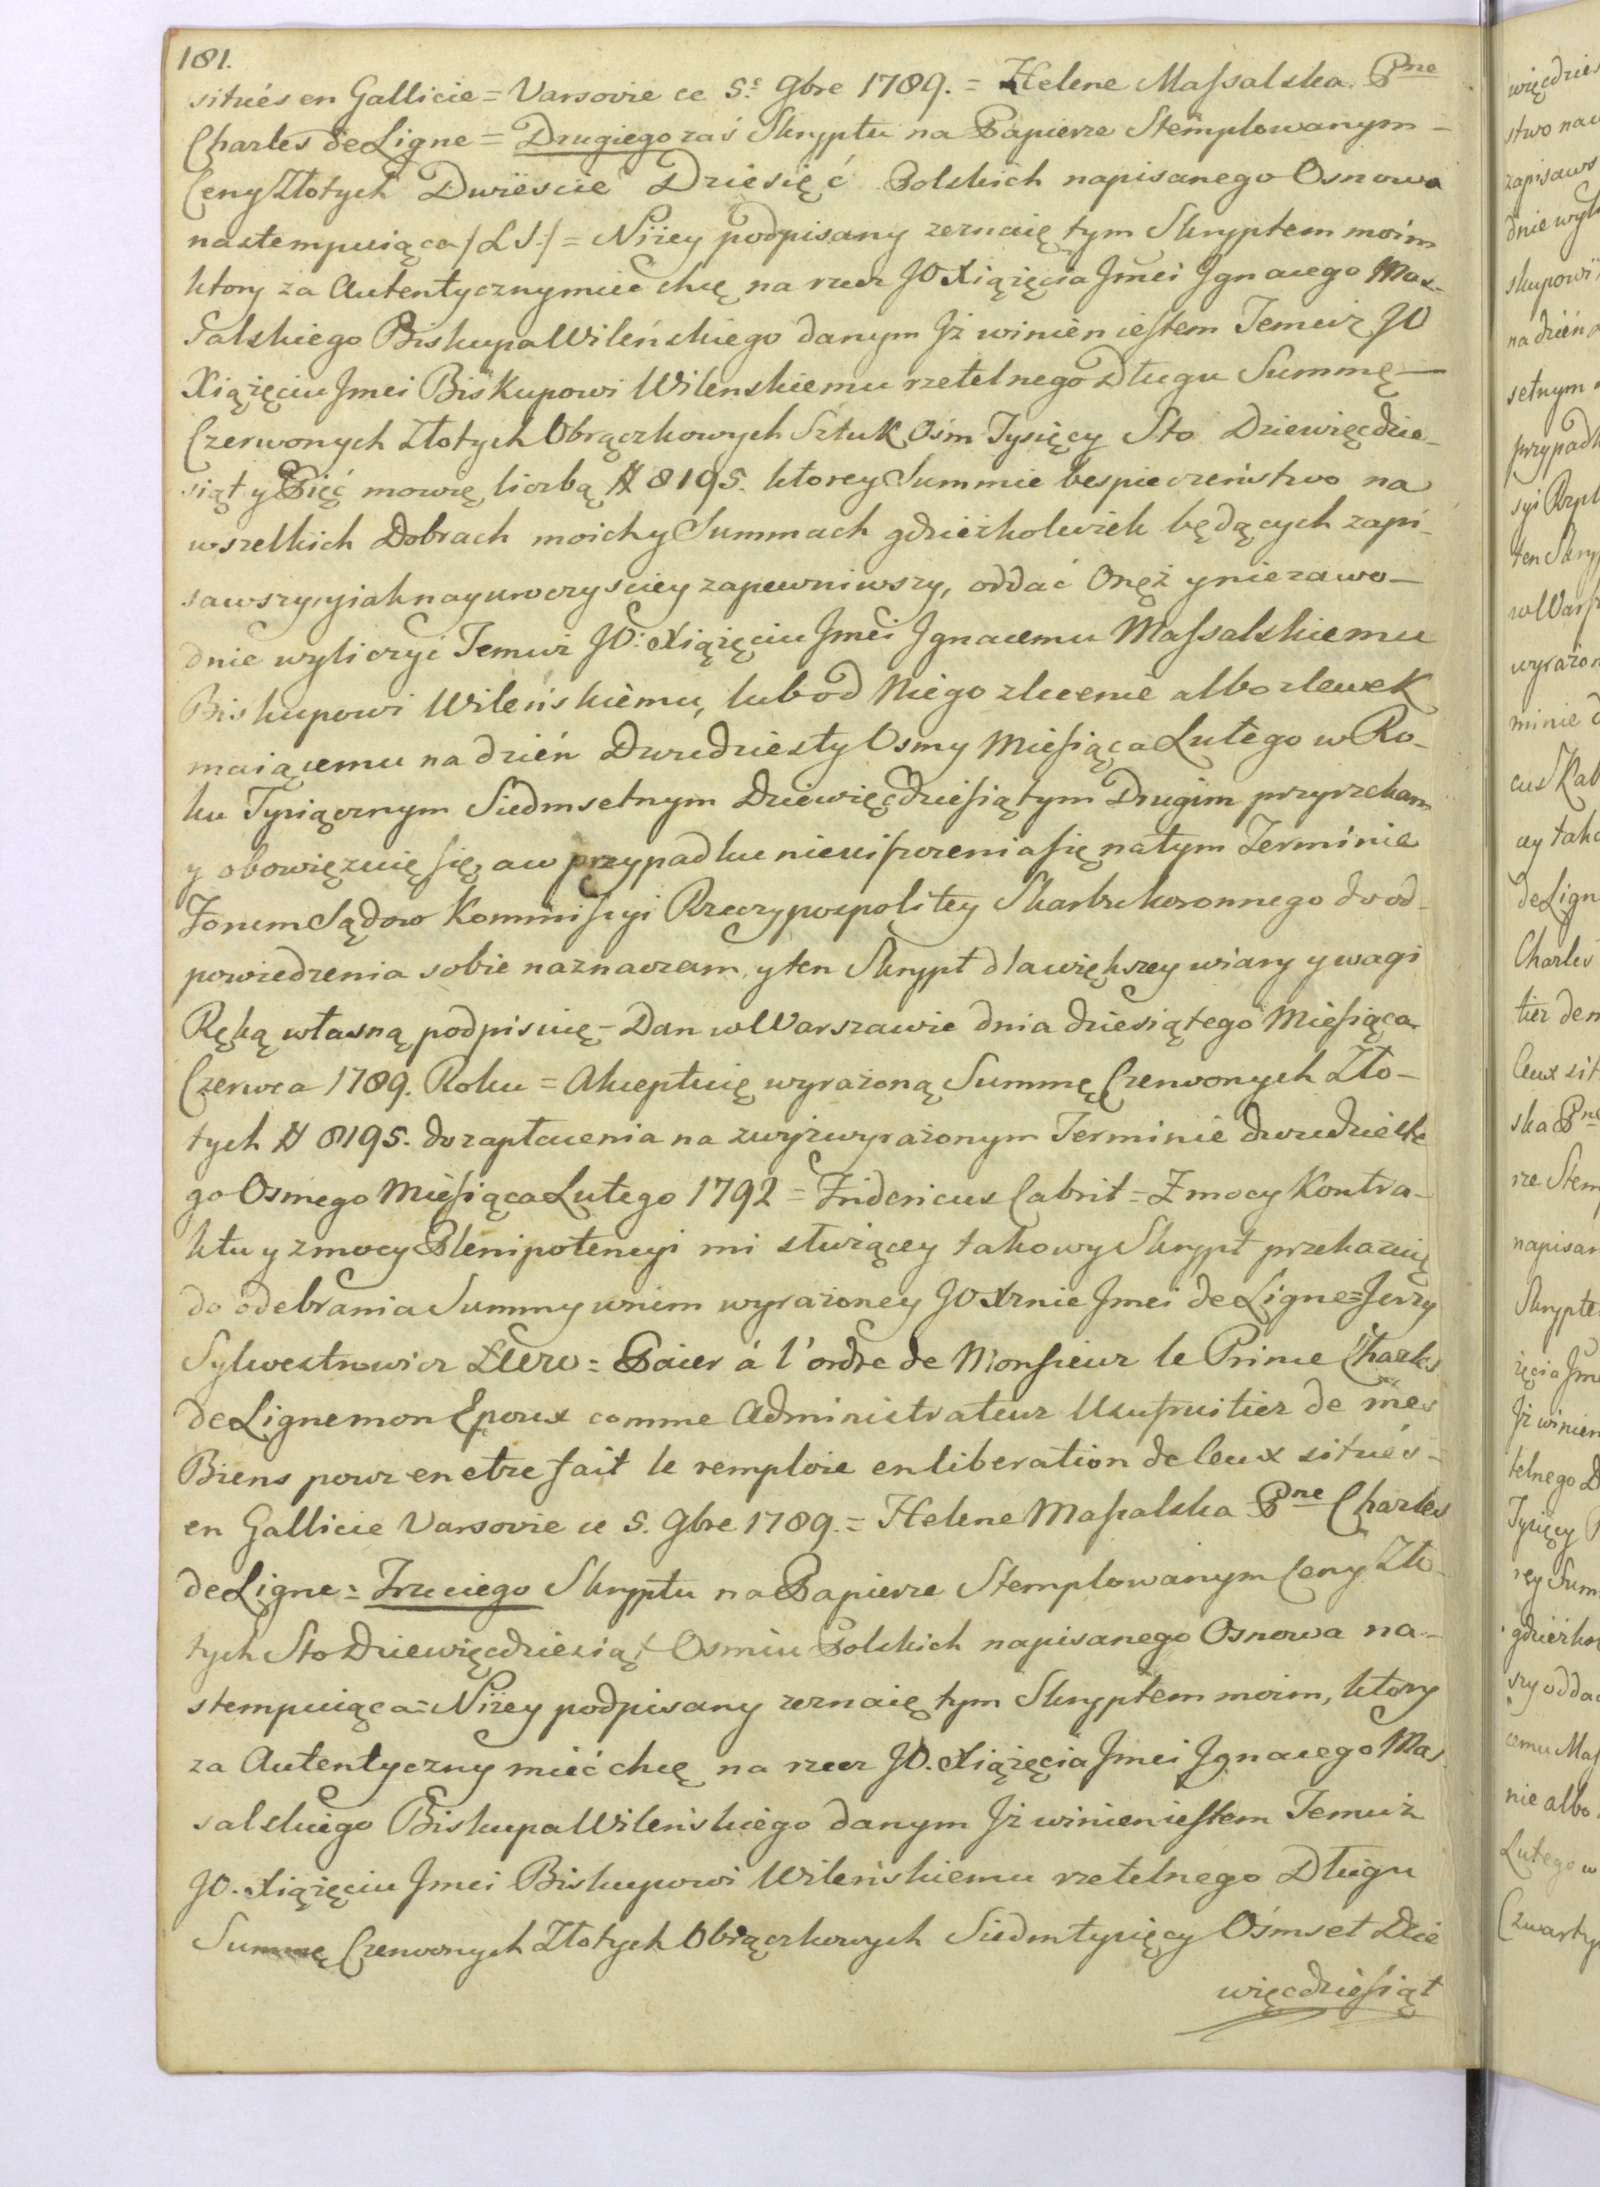 181.
situés en Gallicie = Varsovie ce 5.e 9bre 1789. = Helene Massalska. Pne
Charles de Ligne = Drugiego zaś Skryptu na Papierze Stemplowanym -
Ceny Złotych Dwieście Dziesięć Polskich napisanego Osnowa
nastempuiąca /L.S./ = Niżey podpisany zeznaię tym Skryptem moim
ktory za Autentyczny mieć chcę na rzecz JO Xiążęcia Jmci Jgnacego Mas-
salskiego Biskupa Wileńskiego danym Jż winien iestem Temuż JO
Xiążęciu Jmci Biskupowi Wilenskiemu rzetelnego Długu Summę -
Czerwonych Złotych Obrączkowych Sztuk Osm Tysięcy Sto Dziewięcdzie-
siąt y Pięć mowię liczbą # 8195. ktorey Summie bespieczeństwo na
wszelkich Dobrach moich y Summach gdzieżkolwiek będących zapi-
sawszy, y iak nayuroczyściey zapewniwszy, oddać Onęż y niezawo-
dnie wyliczyć Temuż JO: Xiążęciu Jmci Jgnacemu Massalskiemu
Biskupowi Wileńskiemu, lub od Niego zlecenie albo zlewek
maiącemu na dzień Dwudziesty Osmy Miesiąca Lutego w Ro-
ku Tysiącznym Siedmsetnym Dziewięćdziesiątym Drugim przyrzekam
y obowięzuię się, a w przypadku nieuiszczenia się na tym Terminie
Forum Sądow Kommissyi Rzeczypospolitey Skarbu koronnego do od-
powiedzenia sobie naznaczam, y ten Skrypt dla większey wiary y wagi
Ręką własną podpisuię - Dan w Warszawie dnia dziesiątego Miesiąca
Czerwca 1789. Roku = Akceptuię wyrażoną Summę Czerwonych Zło-
tych # 8195. do zapłacenia na zwyżwyrażonym Terminie dwudzieste
go Osmego Miesiąca Lutego 1792 = Fridericus Cabrit = Z mocy Kontra-
ktu y z mocy Plenipotencyi mi służącey takowy Skrypt przekazuię
do odebrania Summy w nim wyrażoney JO Xznie Jmci de Ligne = Jerzy
Sylwestrowicz = Paier á l'ordre de Monsieur le Prince Charles
de Ligne mon Epoux comme Administrateur Usufruitier de mes
Biens pour en etre fait le remploie en liberation de Ceux situés -
en Gallicie Varsovie ce 5. 9bre 1789. = Helene Massalska Pne Charles
de Ligne = Trzeciego Skryptu na Papierze Stemplowanym Ceny Zło-
tych Sto Dziewięcdziesiąt Osmiu Polskich napisanego Osnowa na-
stempuiąca = Niżey podpisany zeznaię tym Skryptem moim, ktory
za Autentyczny mieć chcę na rzecz JO. Xiążęcia Jmci Jgnacego Mas
salskiego Biskupa Wileńskiego danym Jż winien iestem Temuż
JO. Xiążęciu Jmci Biskupowi Wileńskiemu rzetelnego Długu
Summę Czerwonych Złotych Obrączkowych Siedm tysięcy Ośmset Dzie
więcdziesiąt